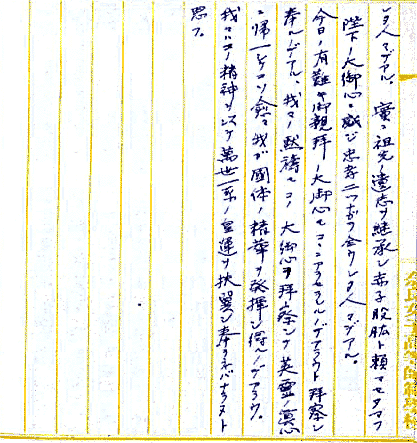 シ人々デアル。實ニ祖先ノ遺志ヲ継承シ赤子股肱ト頼マセタマフ
陛下ノ大御心ニ感ジ忠孝二ツナガラ全ウシタ人々デアル。
今日ノ有難キ御親拝ノ大御心モココニアラセラルルノデアラウト拝察シ
奉ルノデアル。我々ノ黙祷モコノ大御心ヲ拝察シテ英霊ノ冥心
ニ帰一シテコソ愈々我ガ國体ノ精華ヲ発揮シ得ルノデアラウ。
我々ハコノ精神ヲ以テ萬世一系ノ皇運ヲ扶翼シ奉ラネバナラヌト
思フ。